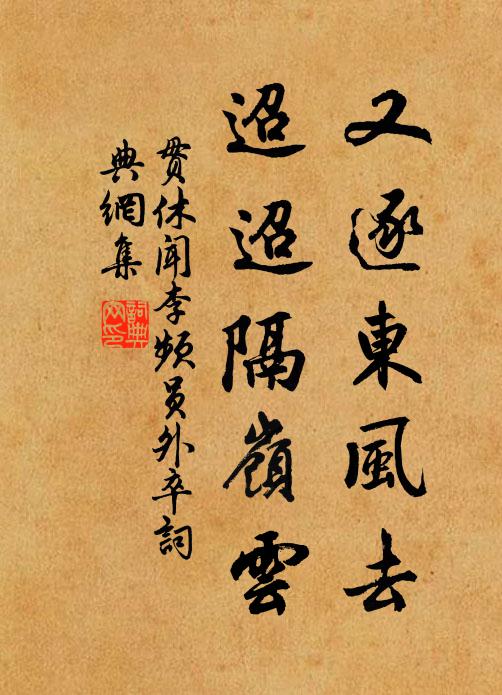 又逐東風去
迢迢隔嶺雲
貫休聞李頻員外卒詞
典網集
詞典網印